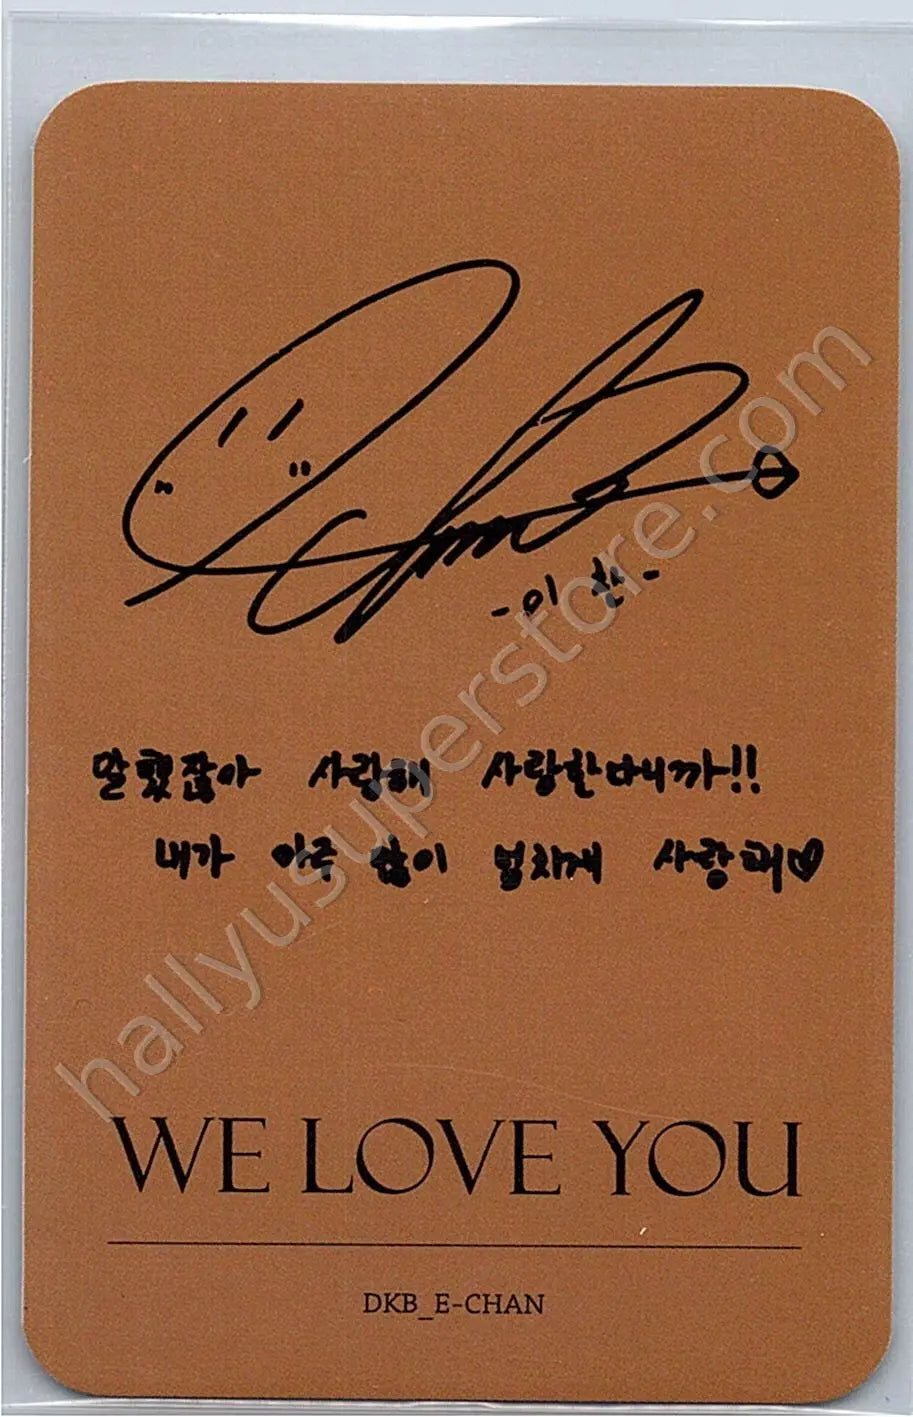 -이찬-
말했잖아 사랑해 사랑한다니까!!
내가 아주 많이 넘치게 사랑해♡
WE LOVE YOU
DKB_E-CHAN
hallyusuperstore.com